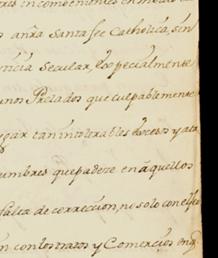 inconvenientes
a nr̃a Santa fee Catholica, sin
Secular, y especialmente
unos Prelados que culpablemente
lugar tan intolerables excesos y
costumbres que padece en aquellos
falta de correccion, no solo con el
con los tratos y Comercios